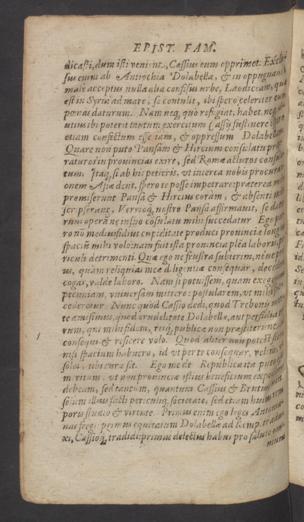 EPIST. FAM.
dicasti, dum isti veniunt, Cassius eum opprimet. Exclu-
sus enim ab Antiochia Dolabella, & in oppugnando
male acceptus nulla alia confisus urbe, Laodiceam, quæ
est in Syria ad mare, se contulit, ibi spero celeriter eum
pœnas daturum. Nam neq; quò refugiat, habet: neq;
diutius ibi poterit tantum exercitum Cassij sustinere.
etiam confectum esse iam, & oppressum Dolabellam.
Quare non puto Pansam & Hircium in consulatu prope-
raturos in provincias exire, sed Romæ acturos consula-
tum. Itaq; si ab his petieris, ut interea nobis procurati-
onem Asiæ dent, spero te posse impetrare: præterea mihi
promiserunt Pansa & Hircius coràm, & absenti mihi
scripserunt, Verrioq; nostro Pansa affirmavit, se da-
turum operam ne in suo consulatu mihi succedatur. Ego por-
rò nō mediusfidius cupiditate produci provinciæ longius
spaciū mihi volo: nam fuit ista provincia plēa laboris, peri-
culi, detrimenti. Quæ ego ne frustra subierim, ne ve pri-
us, quàm reliquias meæ diligentiæ consequar, decedere
cogar, valde laboro. Nam si potuissem, quam exegeram
pecuniam, universam mittere: postularem, ut mihi suc-
cederetur. Nunc quod Cassio dedi, quod Trebonij mor-
te amisimus, quod crudelitate Dolabellæ, aut perfidia eo-
rum, qui mihi fidem, reiq; publicæ non præstiterunt, id
consequi & reficere volo. Quod aliter non potest fieri,
nisi spacium habuero, id ut per te consequar, velim, ut
soles, tibi curæ sit. Ego me de Republica puto esse
meritum, ut non provinciæ istius beneficium expectare
debeam, sed tantum, quantum Cassius & Bruti, non
solùm illius facti periculiq; societate, sed etiam huius tem-
poris studio & virtute. Primus enim ego leges Antonia-
nas fregi: primus equitatum Dolabellæ ad Remp. tradu-
xi, Cassioq; tradidi: primus delectus habui pro salute om-
nium